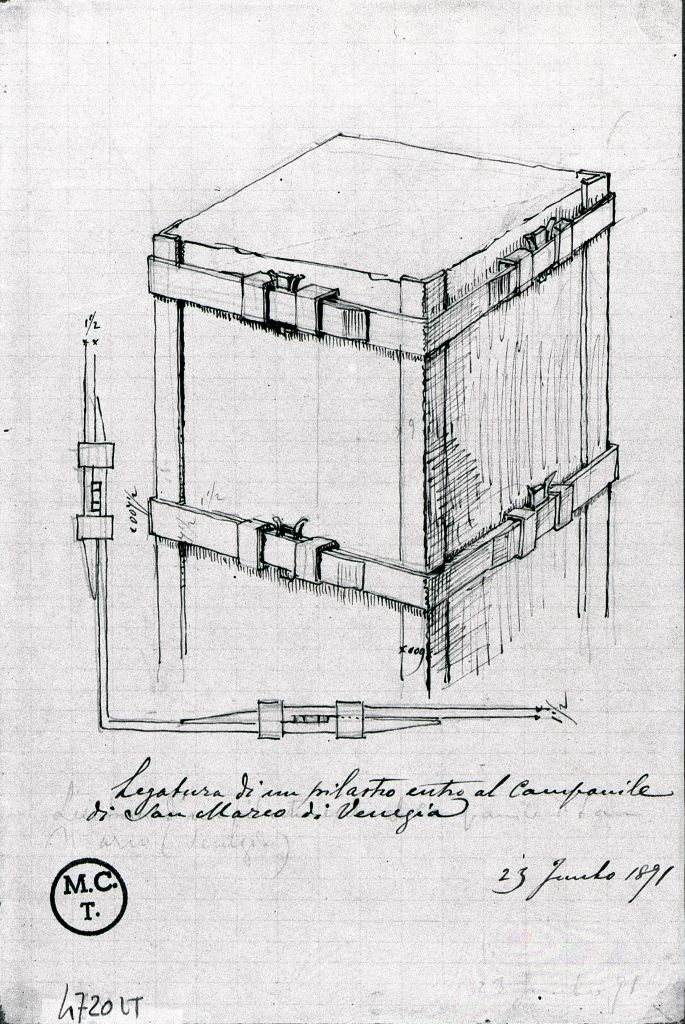 1½
009½
1½
x 009
1½
Legatura di un pilastro entro al Campanile
di San Marco di Venezia
23 Junho 1891
M.C.
T.
4720LT